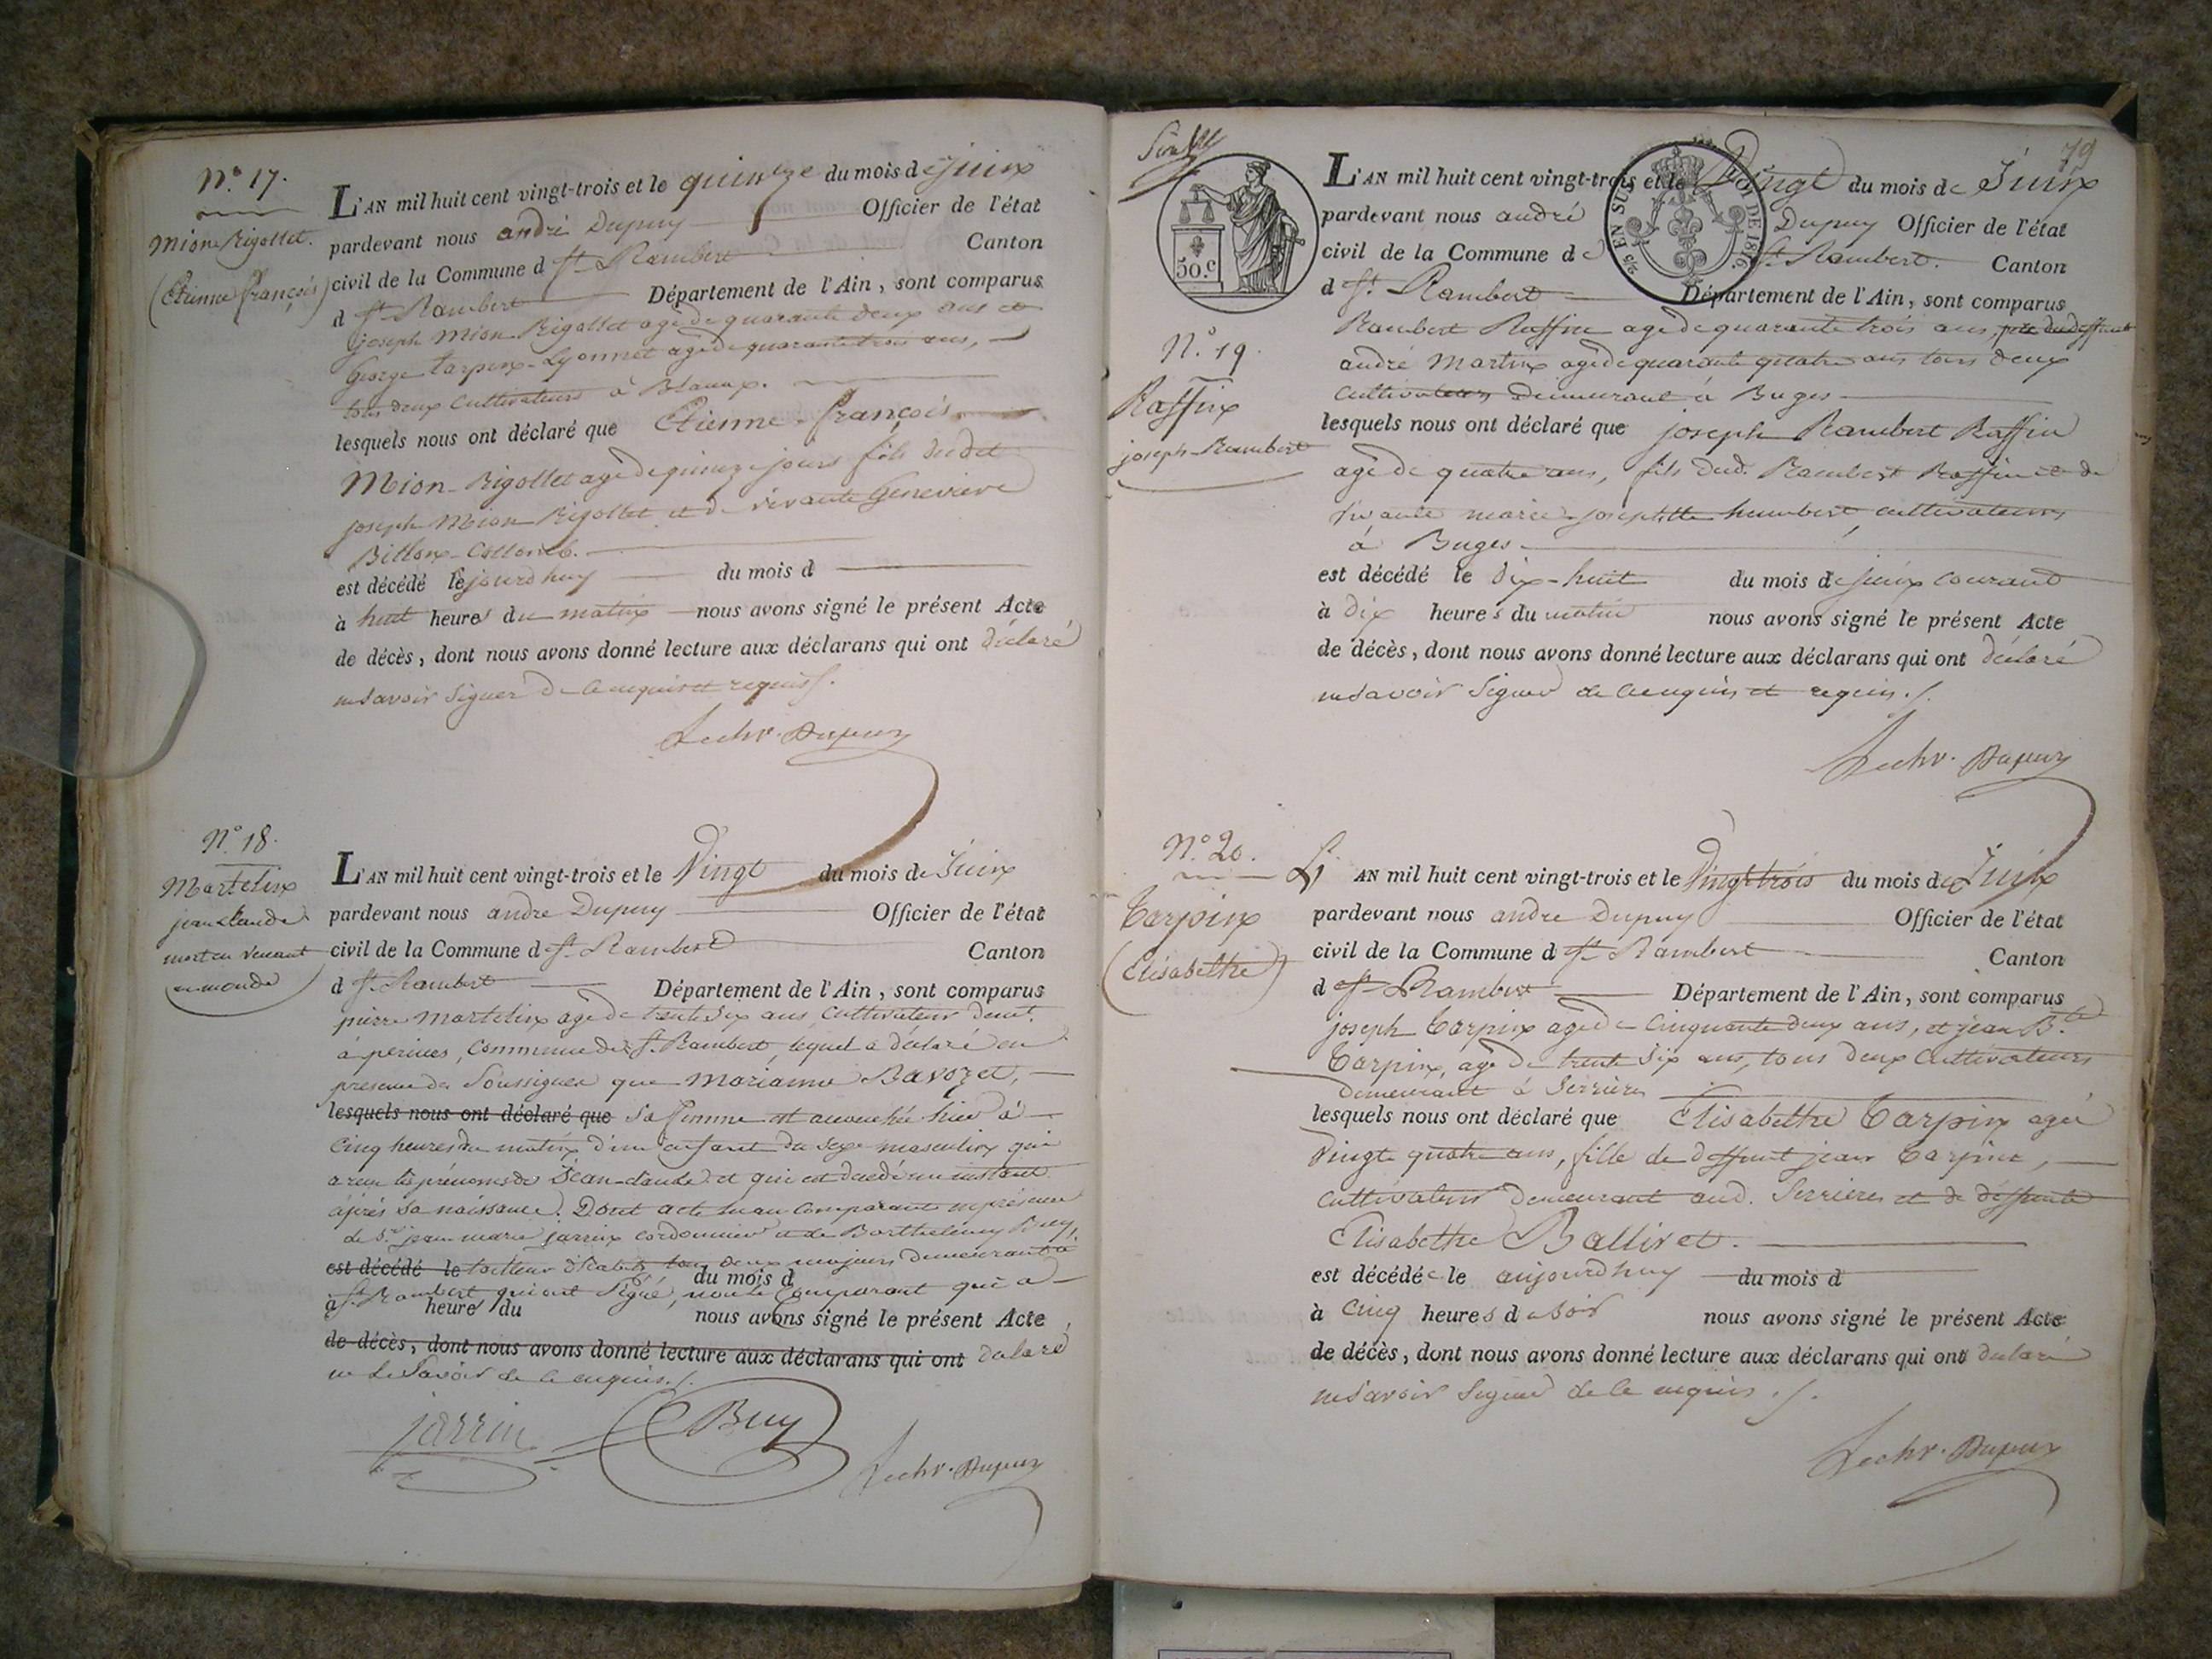 N.° 17.
Mion Rigollet.
(Etienne françois)
L'AN mil huit cent vingt-trois et le quinze du mois de Juin
pardevant nous andré Dupuy Officier de l'état
civil de la Commune d St. Rambert Canton
d St. Rambert Département de l'Ain, sont comparus
joseph Mion Rigollet agé de quarante deux ans et
George tarpin-Lyonnet agé de quarante trois ans,
tous deux Cultivateurs à Blanaz.
lesquels nous ont déclaré que Etienne-françois
Mion-Rigollet agé de quinze jours fils dudit
joseph Mion Rigollet et de vivante Genevieve
Billon-Collomb.
est décédé le jourdhuy du mois d
à huit heures du matin nous avons signé le présent Acte
de décès, dont nous avons donné lecture aux déclarans qui ont déclaré
ne savoir signer de ce enquis et requis ./.
Lechr. Dupuy
N.° 18.
Martelin
jean Claude
mort en venant
au monde
L'AN mil huit cent vingt-trois et le Vingt du mois de Juin
pardevant nous andre Dupuy Officier de l'état
civil de la Commune d St. Rambert Canton
d St. Rambert Département de l'Ain, sont comparus
pierre Martelin agé de trente six ans Cultivateur demt.
à perines, Commune de St. Rambert, lequel a déclaré en
presence des Soussignes que Marianne Bavozet,
lesquels nous ont déclaré que sa femme est accouchée hier à
cinq heures du matin d'un enfant du sexe masculin qui
a recu les prénoms de Jean-claude et qui est decedé un instant
après sa naissance. Dont acte lu au Comparant en présence
de Sr. jean marie jarrin cordonnier et de Barthelemy Buy,
est décédé le tailleur d'habits tous deux majeurs demeurant à
du mois d
à St. Rambert qui ont Signé, non le Comparant qui a
heures du nous avons signé le présent Acte
de décès, dont nous avons donné lecture aux déclarans qui ont déclaré
ne le Savoir de ce enquis ./.
jarrin Buy Lechr. Dupuy
79
50.c
25 EN SUS LOI DE 1816.
N.° 19.
Raffin
joseph-Rambert
L'AN mil huit cent vingt-trois et le Vingt du mois de Juin
pardevant nous andré Dupuy Officier de l'état
civil de la Commune de St. Rambert. Canton
d St. Rambert Département de l'Ain, sont comparus
Rambert Raffin agé de quarante trois ans, père du deffunt
andré Martin agé de quarante quatre ans tous deux
cultivateurs demeurant à Buges
lesquels nous ont déclaré que joseph Rambert Raffin
agé de quatre ans, fils dud. Rambert Raffin et de
vivante marie-josephtte humbert cultivateurs
à Buges
est décédé le dix-huit du mois de juin courant
à dix heures du matin nous avons signé le présent Acte
de décès, dont nous avons donné lecture aux déclarans qui ont déclaré
ne savoir signer de ce enquis et requis ./.
Lechr. Dupuy
N.° 20.
Tarpin
(Elisabethe)
L'AN mil huit cent vingt-trois et le Vingt trois du mois de Juin
pardevant nous andre Dupuy Officier de l'état
civil de la Commune d St. Rambert Canton
d St. Rambert Département de l'Ain, sont comparus
joseph Tarpin agé de cinquante deux ans, et jean Bte.
Tarpin, agé de trente six ans, tous deux Cultivateurs
demeurant à Serrières
lesquels nous ont déclaré que Elisabethe Tarpin agée
Vingte quatre ans, fille de deffunt jean Tarpin,
cultivateur demeurant aud. Serrières et de deffunte
Elisabethe Ballivet.
est décédée le aujourdhuy du mois d
à cinq heures du soir nous avons signé le présent Acte
de décès, dont nous avons donné lecture aux déclarans qui ont déclaré
ne savoir signer de ce enquis ./.
Lechr. Dupuy